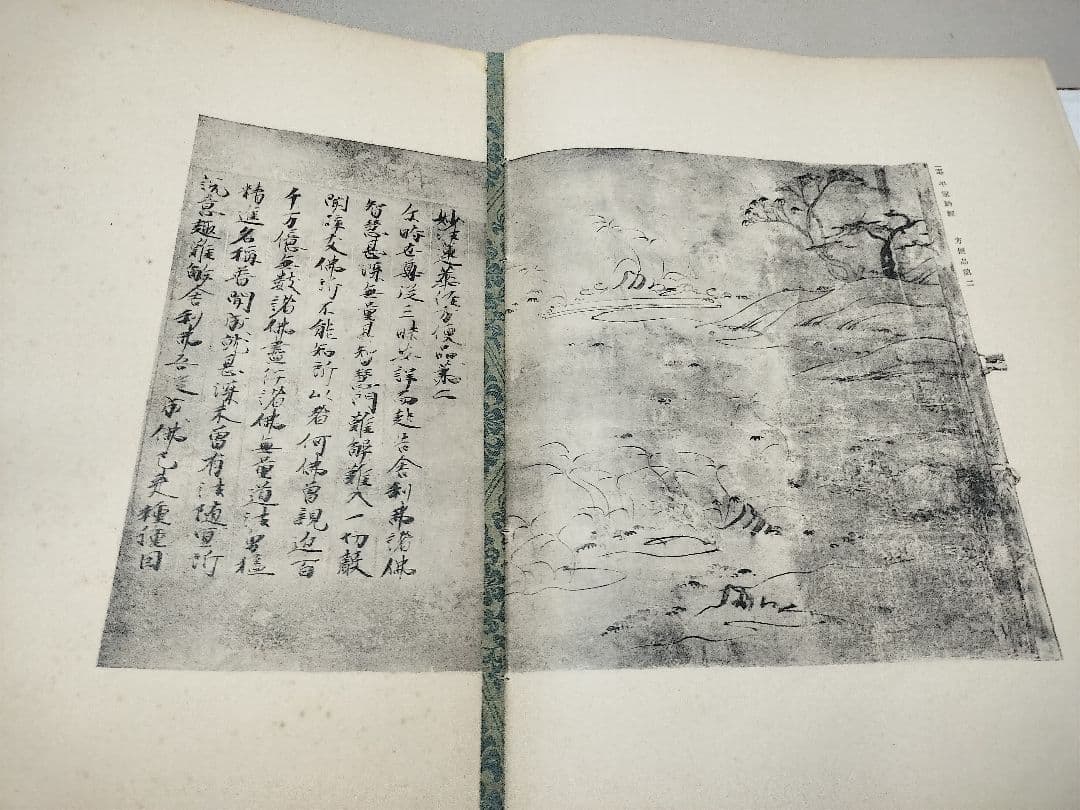 平家納經 方便品第二
妙法蓮華経方便品第二
尒時世尊従三昧安詳而起告舎利弗諸佛
智慧甚深無量其智慧門難解難入一切聲
聞辟支佛所不能知所以者何佛曽親近百
千万億無數諸佛盡行諸佛無量道法勇猛
精進名稱普聞成就甚深未曽有法随宜所
説意趣難解舎利弗吾従成佛已来種種因